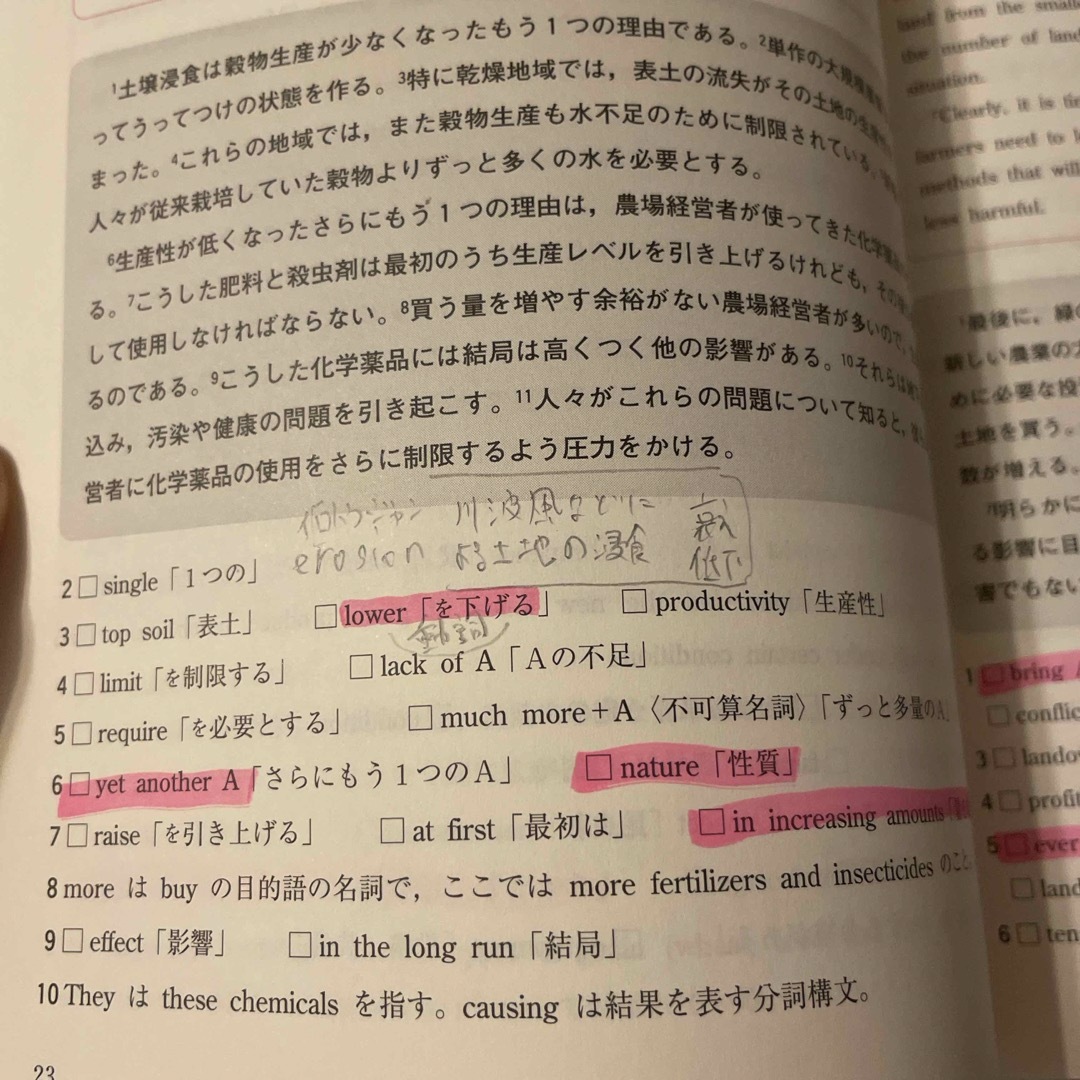 ¹土壌浸食は穀物生産が少なくなったもう1つの理由である。²単作の大規模
ってうってつけの状態を作る。³特に乾燥地域では，表土の流失がその土地の生産
まった。⁴これらの地域では，また穀物生産も水不足のために制限されている。
人々が従来栽培していた穀物よりずっと多くの水を必要とする。
⁶生産性が低くなったさらにもう1つの理由は，農場経営者が使ってきた化学薬品
る。⁷こうした肥料と殺虫剤は最初のうち生産レベルを引き上げるけれども，その
して使用しなければならない。⁸買う量を増やす余裕がない農場経営者が多いので，
るのである。⁹こうした化学薬品には結局は高くつく他の影響がある。¹⁰それらは
込み，汚染や健康の問題を引き起こす。¹¹人々がこれらの問題について知ると，
営者に化学薬品の使用をさらに制限するよう圧力をかける。
川波風などに
erosion よる土地の浸食 低下
2 □ single「1つの」
3 □ top soil「表土」 □ lower「を下げる」 □ productivity「生産性」
動詞
4 □ limit「を制限する」 □ lack of A「Aの不足」
5 □ require「を必要とする」 □ much more＋A〈不可算名詞〉「ずっと多量のA
6 □ yet another A「さらにもう1つのA」 □ nature「性質」
7 □ raise「を引き上げる」 □ at first「最初は」 □ in increasing amounts
8 more は buy の目的語の名詞で，ここでは more fertilizers and insecticides のこと
9 □ effect「影響」 □ in the long run「結局」
10 They は these chemicals を指す。causing は結果を表す分詞構文。
23
land from the smaller
the number of land
situation.
Clearly, it is
farmers need to
methods that will
less harmful.
最後に，緑の
新しい農業の
めに必要な投
土地を買う。
数が増える。
明らかに
る影響に目
害でもない
1 □ bring A
□ conflic
3 □ lando
4 □ profi
5 □ ever
□ land
6 □ ten